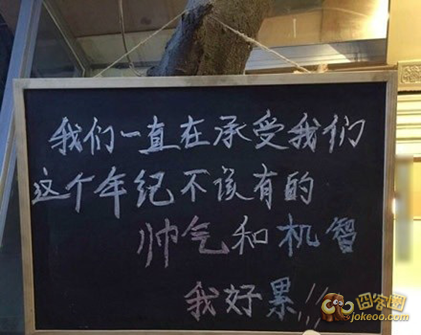 我们一直在承受我们
这个年纪不该有的
帅气和机智
我好累!!!
囧客圈
jokeoo.com